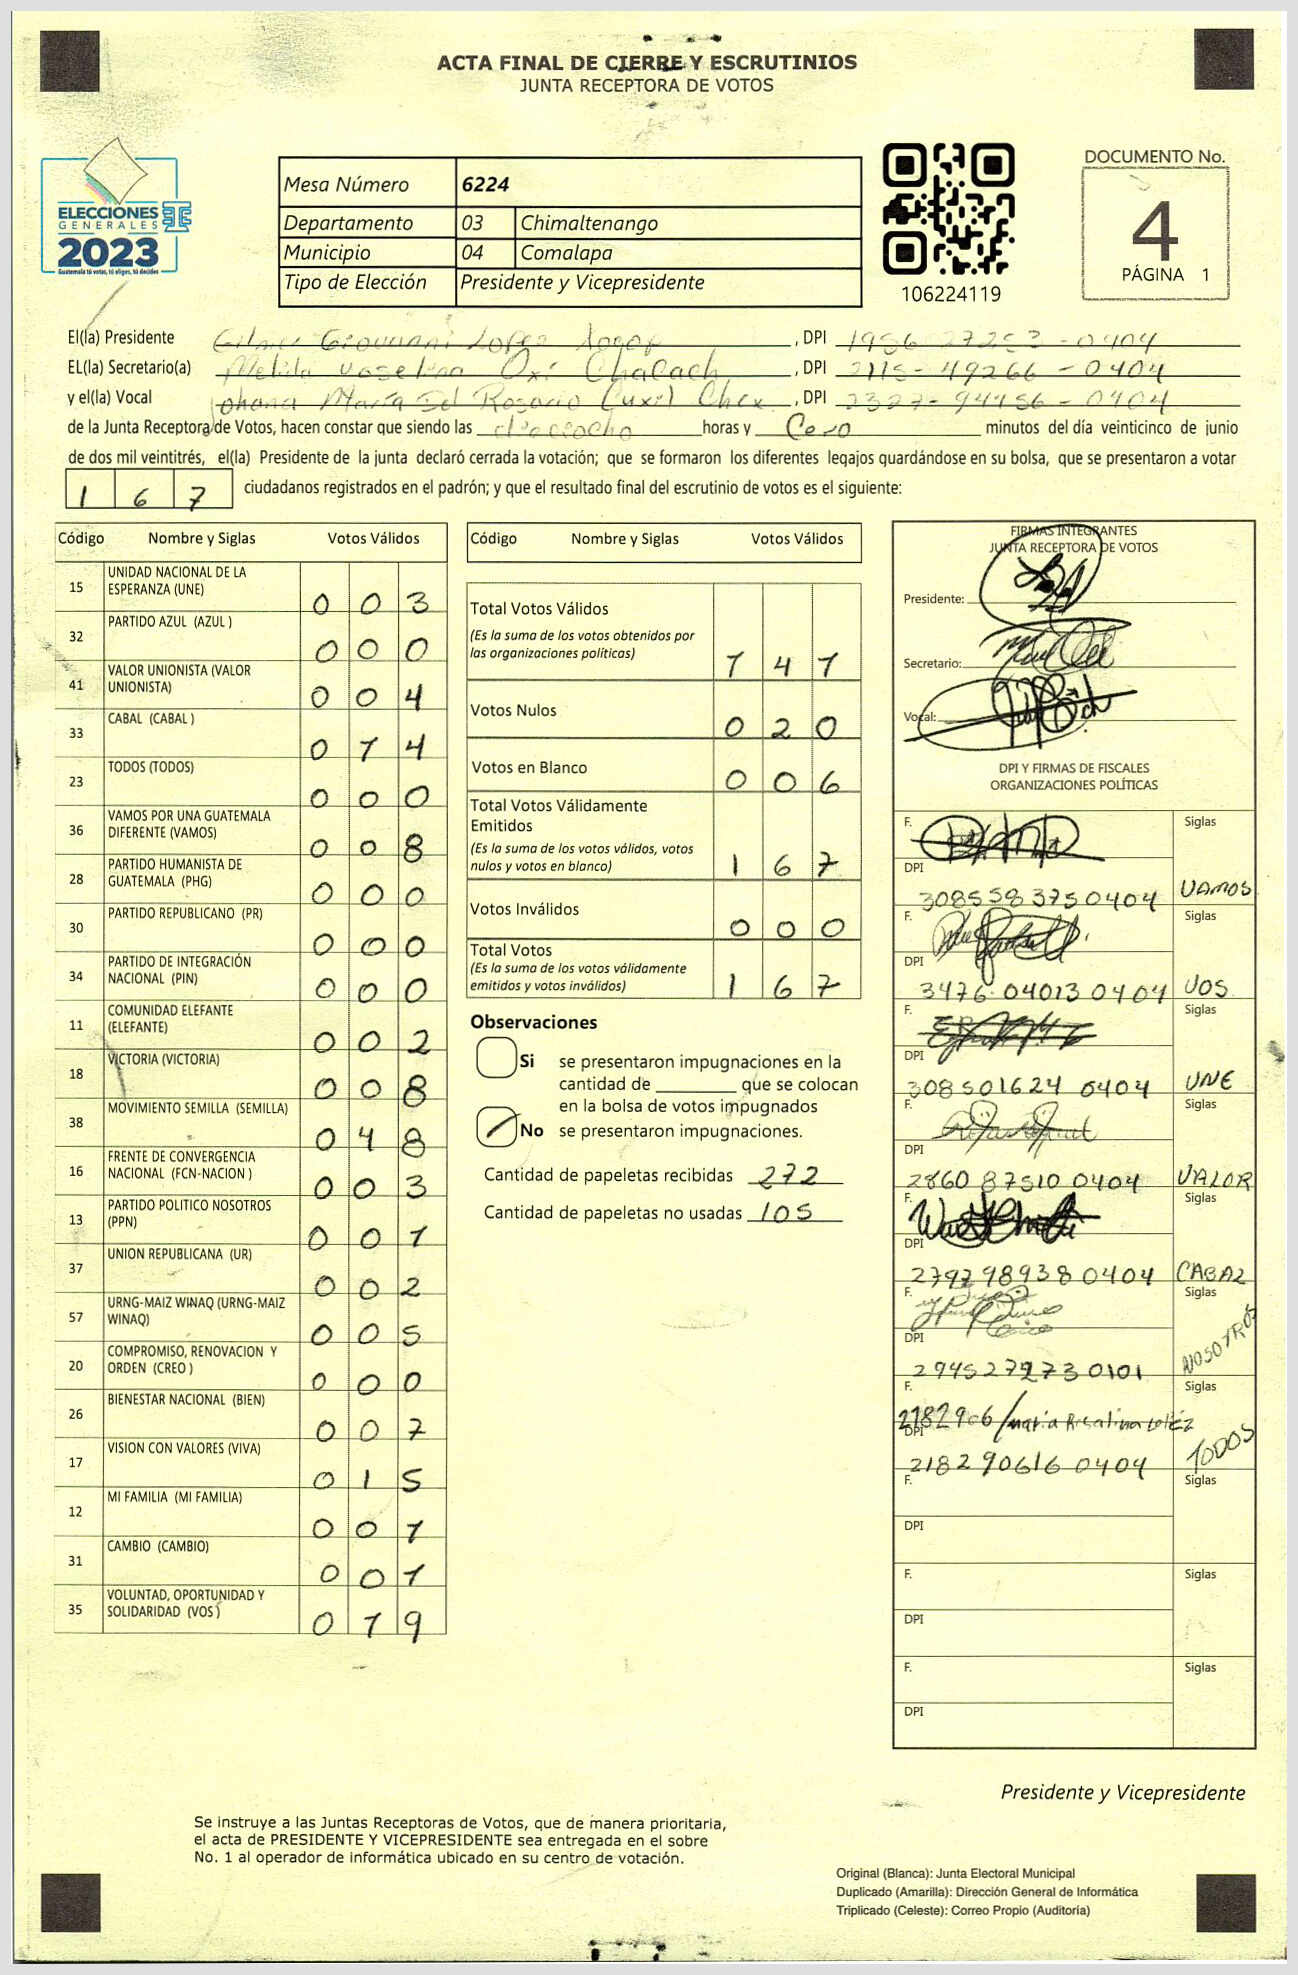 ACTA FINAL DE CIERRE Y ESCRUTINIOS
JUNTA RECEPTORA DE VOTOS
ELECCIONES
GENERALES
2023
Guatemala tú votas, tú eliges, tú decides
Mesa Número 6224
Departamento 03 Chimaltenango
Municipio 04 Comalapa
Tipo de Elección Presidente y Vicepresidente
106224119
DOCUMENTO No.
4
PÁGINA 1
El(la) Presidente Giovanni Lopez , DPI 1956 27253 - 0404
EL(la) Secretario(a) Oxí Chalach , DPI 2115 - 49266 - 0404
y el(la) Vocal Johana María Del Rosario Cuxil Chex , DPI 2327 - 94456 - 0404
de la Junta Receptora de Votos, hacen constar que siendo las dieciocho horas y Cero minutos del día veinticinco de junio
de dos mil veintitrés, el(la) Presidente de la junta declaró cerrada la votación; que se formaron los diferentes legajos quardándose en su bolsa, que se presentaron a votar
1 6 7 ciudadanos registrados en el padrón; y que el resultado final del escrutinio de votos es el siguiente:
Código Nombre y Siglas Votos Válidos
15 UNIDAD NACIONAL DE LA
ESPERANZA (UNE) 0 0 3
32 PARTIDO AZUL (AZUL ) 0 0 0
41 VALOR UNIONISTA (VALOR
UNIONISTA) 0 0 4
33 CABAL (CABAL ) 0 1 4
23 TODOS (TODOS) 0 0 0
36 VAMOS POR UNA GUATEMALA
DIFERENTE (VAMOS) 0 0 8
28 PARTIDO HUMANISTA DE
GUATEMALA (PHG) 0 0 0
30 PARTIDO REPUBLICANO (PR) 0 0 0
34 PARTIDO DE INTEGRACIÓN
NACIONAL (PIN) 0 0 0
11 COMUNIDAD ELEFANTE
(ELEFANTE) 0 0 2
18 VICTORIA (VICTORIA) 0 0 8
38 MOVIMIENTO SEMILLA (SEMILLA) 0 4 8
16 FRENTE DE CONVERGENCIA
NACIONAL (FCN-NACION ) 0 0 3
13 PARTIDO POLITICO NOSOTROS
(PPN) 0 0 1
37 UNION REPUBLICANA (UR) 0 0 2
57 URNG-MAIZ WINAQ (URNG-MAIZ
WINAQ) 0 0 5
20 COMPROMISO, RENOVACION Y
ORDEN (CREO ) 0 0 0
26 BIENESTAR NACIONAL (BIEN) 0 0 7
17 VISION CON VALORES (VIVA) 0 1 5
12 MI FAMILIA (MI FAMILIA) 0 0 1
31 CAMBIO (CAMBIO) 0 0 1
35 VOLUNTAD, OPORTUNIDAD Y
SOLIDARIDAD (VOS ) 0 1 9
Código Nombre y Siglas Votos Válidos
Total Votos Válidos
(Es la suma de los votos obtenidos por
las organizaciones políticas) 1 4 1
Votos Nulos 0 2 0
Votos en Blanco 0 0 6
Total Votos Válidamente
Emitidos
(Es la suma de los votos válidos, votos
nulos y votos en blanco) 1 6 7
Votos Inválidos 0 0 0
Total Votos
(Es la suma de los votos válidamente
emitidos y votos inválidos) 1 6 7
Observaciones
Si se presentaron impugnaciones en la
cantidad de ________ que se colocan
en la bolsa de votos impugnados
No se presentaron impugnaciones.
Cantidad de papeletas recibidas 272
Cantidad de papeletas no usadas 105
FIRMAS INTEGRANTES
JUNTA RECEPTORA DE VOTOS
Presidente:
Secretario:
Vocal:
DPI Y FIRMAS DE FISCALES
ORGANIZACIONES POLÍTICAS
F. Siglas
DPI 308558375 0404 VAMOS
F. Siglas
DPI 3476 04013 0404 VOS
F. Siglas
DPI 308501624 0404 UNE
F. Siglas
DPI 2860 87510 0404 VALOR
F. Siglas
DPI 279298938 0404 CABAL
F. Siglas
DPI 294527273 0101 NOSOTROS
F. 2182906 / maria Rosalina Siglas
DPI 218290616 0404 TODOS
F. Siglas
DPI
F. Siglas
DPI
F. Siglas
DPI
Presidente y Vicepresidente
Se instruye a las Juntas Receptoras de Votos, que de manera prioritaria,
el acta de PRESIDENTE Y VICEPRESIDENTE sea entregada en el sobre
No. 1 al operador de informática ubicado en su centro de votación.
Original (Blanca): Junta Electoral Municipal
Duplicado (Amarilla): Dirección General de Informática
Triplicado (Celeste): Correo Propio (Auditoría)